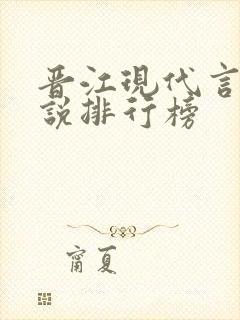 晋江現代言
說排行榜
甯夏